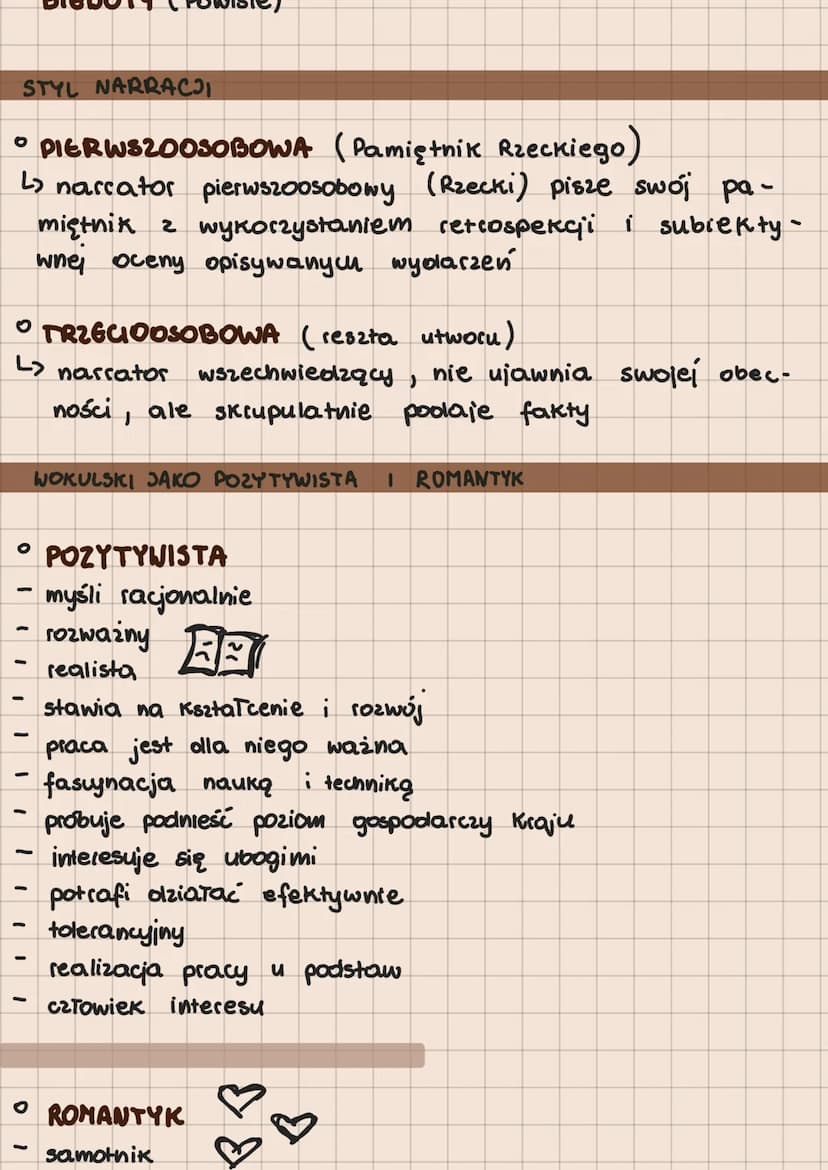 BIEDOTY (Powiśle)
STYL NARRACJI
° PIERWSZOOSOBOWA (Pamiętnik Rzeckiego)
↳ narrator pierwszoosobowy (Rzecki) pisze swój pa-
miętnik z wykorzystaniem retrospekcji i subiekty-
wnej oceny opisywanych wydarzeń
° TRZECIOOSOBOWA (reszta utworu)
↳ narrator wszechwiedzący, nie ujawnia swojej obec-
ności, ale skrupulatnie podaje fakty
WOKULSKI JAKO POZYTYWISTA I ROMANTYK
° POZYTYWISTA
- myśli racjonalnie
- rozważny
- realista
- stawia na kształcenie i rozwój
- praca jest dla niego ważna
- fascynacja nauką i techniką
- próbuje podnieść poziom gospodarczy kraju
- interesuje się ubogimi
- potrafi działać efektywnie
- tolerancyjny
- realizacja pracy u podstaw
- człowiek interesu
° ROMANTYK
- samotnik